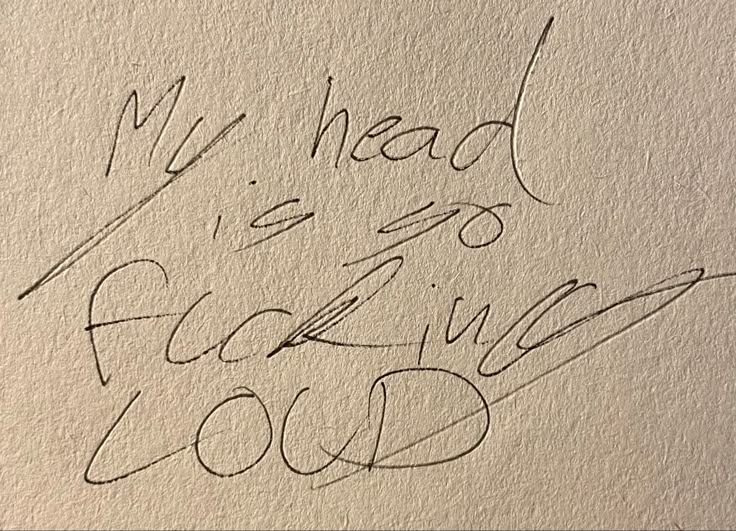 My head
is so
fucking
LOUD